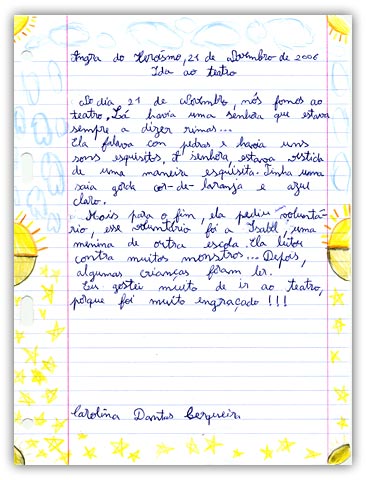 Angra do Heroísmo, 21 de Novembro de 2006
Ida ao teatro
No dia 21 de Novembro, nós fomos ao
teatro. Lá havia uma senhora que estava
sempre a dizer rimas...
Ela falava com pedras e havia uns
sons esquisitos. A senhora, estava vestida
de uma maneira esquisita. Tinha uma
saia gorda cor-de-laranja e azul
claro.
Mais para o fim, ela pediu voluntá-
rio, esse voluntário foi a Isabel, uma
menina de outra escola. Ela lutou
contra muitos monstros... Depois,
algumas crianças foram ler.
Eu gostei muito de ir ao teatro,
porque foi muito engraçado!!!
Carolina Dantas Cerqueira